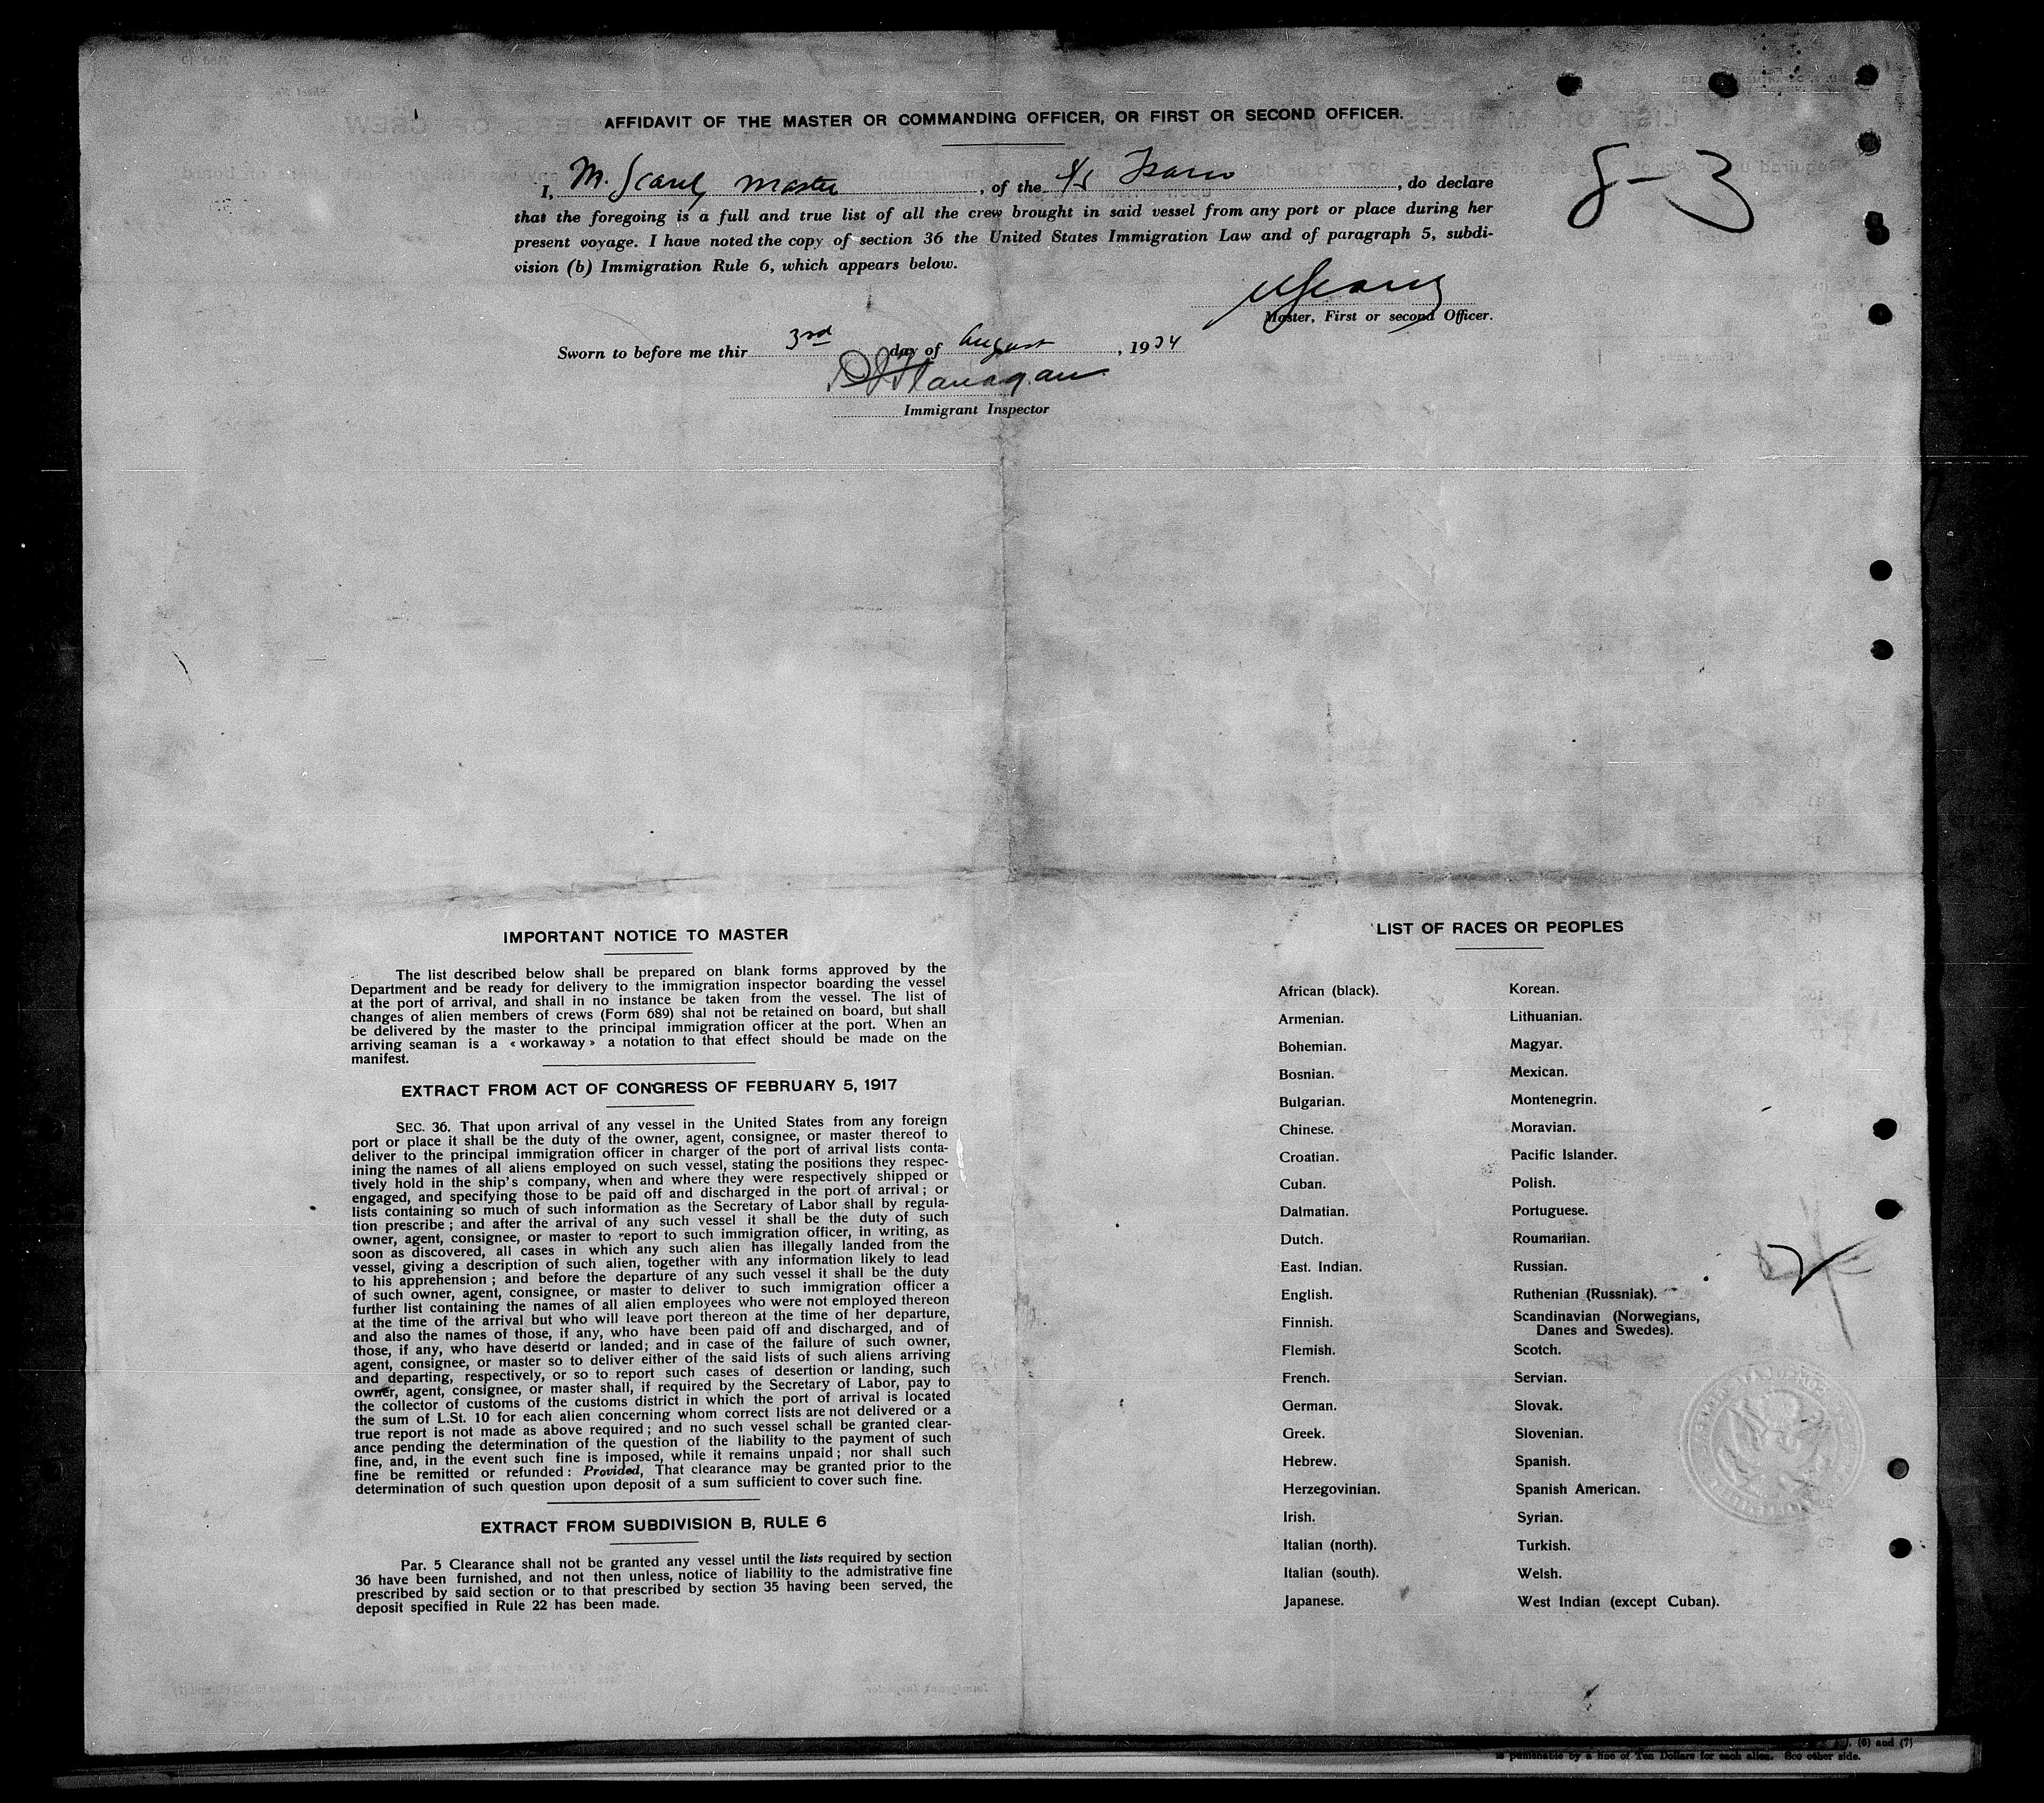 AFFIDAVIT OF THE MASTER OR COMMANDING OFFICER, OR FIRST OR SECOND OFFICER.
8-3
I, M. Scarly Master, of the S/S Isarco, do declare
that the foregoing is a full and true list of all the crew brought in said vessel from any port or place during her
present voyage. I have noted the copy of section 36 the United States Immigration Law and of paragraph 5, subdi-
vision (b) Immigration Rule 6, which appears below.
Master, First or second Officer.
Sworn to before me thir 3rd day of August, 1934
Flanagan
Immigrant Inspector
IMPORTANT NOTICE TO MASTER
The list described below shall be prepared on blank forms approved by the
Department and be ready for delivery to the immigration inspector boarding the vessel
at the port of arrival, and shall in no instance be taken from the vessel. The list of
changes of alien members of crews (Form 689) shal not be retained on board, but shall
be delivered by the master to the principal immigration officer at the port. When an
arriving seaman is a « workaway » a notation to that effect should be made on the
manifest.
EXTRACT FROM ACT OF CONGRESS OF FEBRUARY 5, 1917
SEC. 36. That upon arrival of any vessel in the United States from any foreign
port or place it shall be the duty of the owner, agent, consignee, or master thereof to
deliver to the principal immigration officer in charger of the port of arrival lists conta-
ining the names of all aliens employed on such vessel, stating the positions they respec-
tively hold in the ship's company, when and where they were respectively shipped or
engaged, and specifying those to be paid off and discharged in the port of arrival ; or
lists containing so much of such information as the Secretary of Labor shall by regula-
tion prescribe ; and after the arrival of any such vessel it shall be the duty of such
owner, agent, consignee, or master to report to such immigration officer, in writing, as
soon as discovered, all cases in which any such alien has illegally landed from the
vessel, giving a description of such alien, together with any information likely to lead
to his apprehension ; and before the departure of any such vessel it shall be the duty
of such owner, agent, consignee, or master to deliver to such immigration officer a
further list containing the names of all alien employees who were not employed thereon
at the time of the arrival but who will leave port thereon at the time of her departure,
and also the names of those, if any, who have been paid off and discharged, and of
those, if any, who have desertd or landed; and in case of the failure of such owner,
agent, consignee, or master so to deliver either of the said lists of such aliens arriving
and departing, respectively, or so to report such cases of desertion or landing, such
owner, agent, consignee, or master shall, if required by the Secretary of Labor, pay to
the collector of customs of the customs district in which the port of arrival is located
the sum of L.St. 10 for each alien concerning whom correct lists are not delivered or a
true report is not made as above required ; and no such vessel schall be granted clear-
ance pending the determination of the question of the liability to the payment of such
fine, and, in the event such fine is imposed, while it remains unpaid ; nor shall such
fine be remitted or refunded : Provided, That clearance may be granted prior to the
determination of such question upon deposit of a sum sufficient to cover such fine.
EXTRACT FROM SUBDIVISION B, RULE 6
Par. 5 Clearance shall not be granted any vessel until the lists required by section
36 have been furnished, and not then unless, notice of liability to the admistrative fine
prescribed by said section or to that prescribed by section 35 having been served, the
deposit specified in Rule 22 has been made.
LIST OF RACES OR PEOPLES
African (black).
Armenian.
Bohemian.
Bosnian.
Bulgarian.
Chinese.
Croatian.
Cuban.
Dalmatian.
Dutch.
East. Indian.
English.
Finnish.
Flemish.
French.
German.
Greek.
Hebrew.
Herzegovinian.
Irish.
Italian (north).
Italian (south).
Japanese.
Korean.
Lithuanian.
Magyar.
Mexican.
Montenegrin.
Moravian.
Pacific Islander.
Polish.
Portuguese.
Roumanian.
Russian.
Ruthenian (Russniak).
Scandinavian (Norwegians,
Danes and Swedes).
Scotch.
Servian.
Slovak.
Slovenian.
Spanish.
Spanish American.
Syrian.
Turkish.
Welsh.
West Indian (except Cuban).
(6) and (7)
is punishable by a fine of Ten Dollars for each alien. See other side.